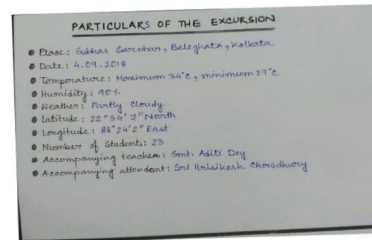 PARTICULARS OF THE EXCURSION
Place: Subhas Sarobar, Beleghata, Kolkata.
Date: 4.09.2018
Temperature: Maximum 34°C, minimum 27°C
Humidity: 90%.
Weather: Partly Cloudy
Latitude: 22°34'7" North
Longitude: 88°24'2" East
Number of Students: 23
Accompanying teacher: Smt. Aditi Dey
Accompanying attendent: Sri Hrisikesh Chowdhury